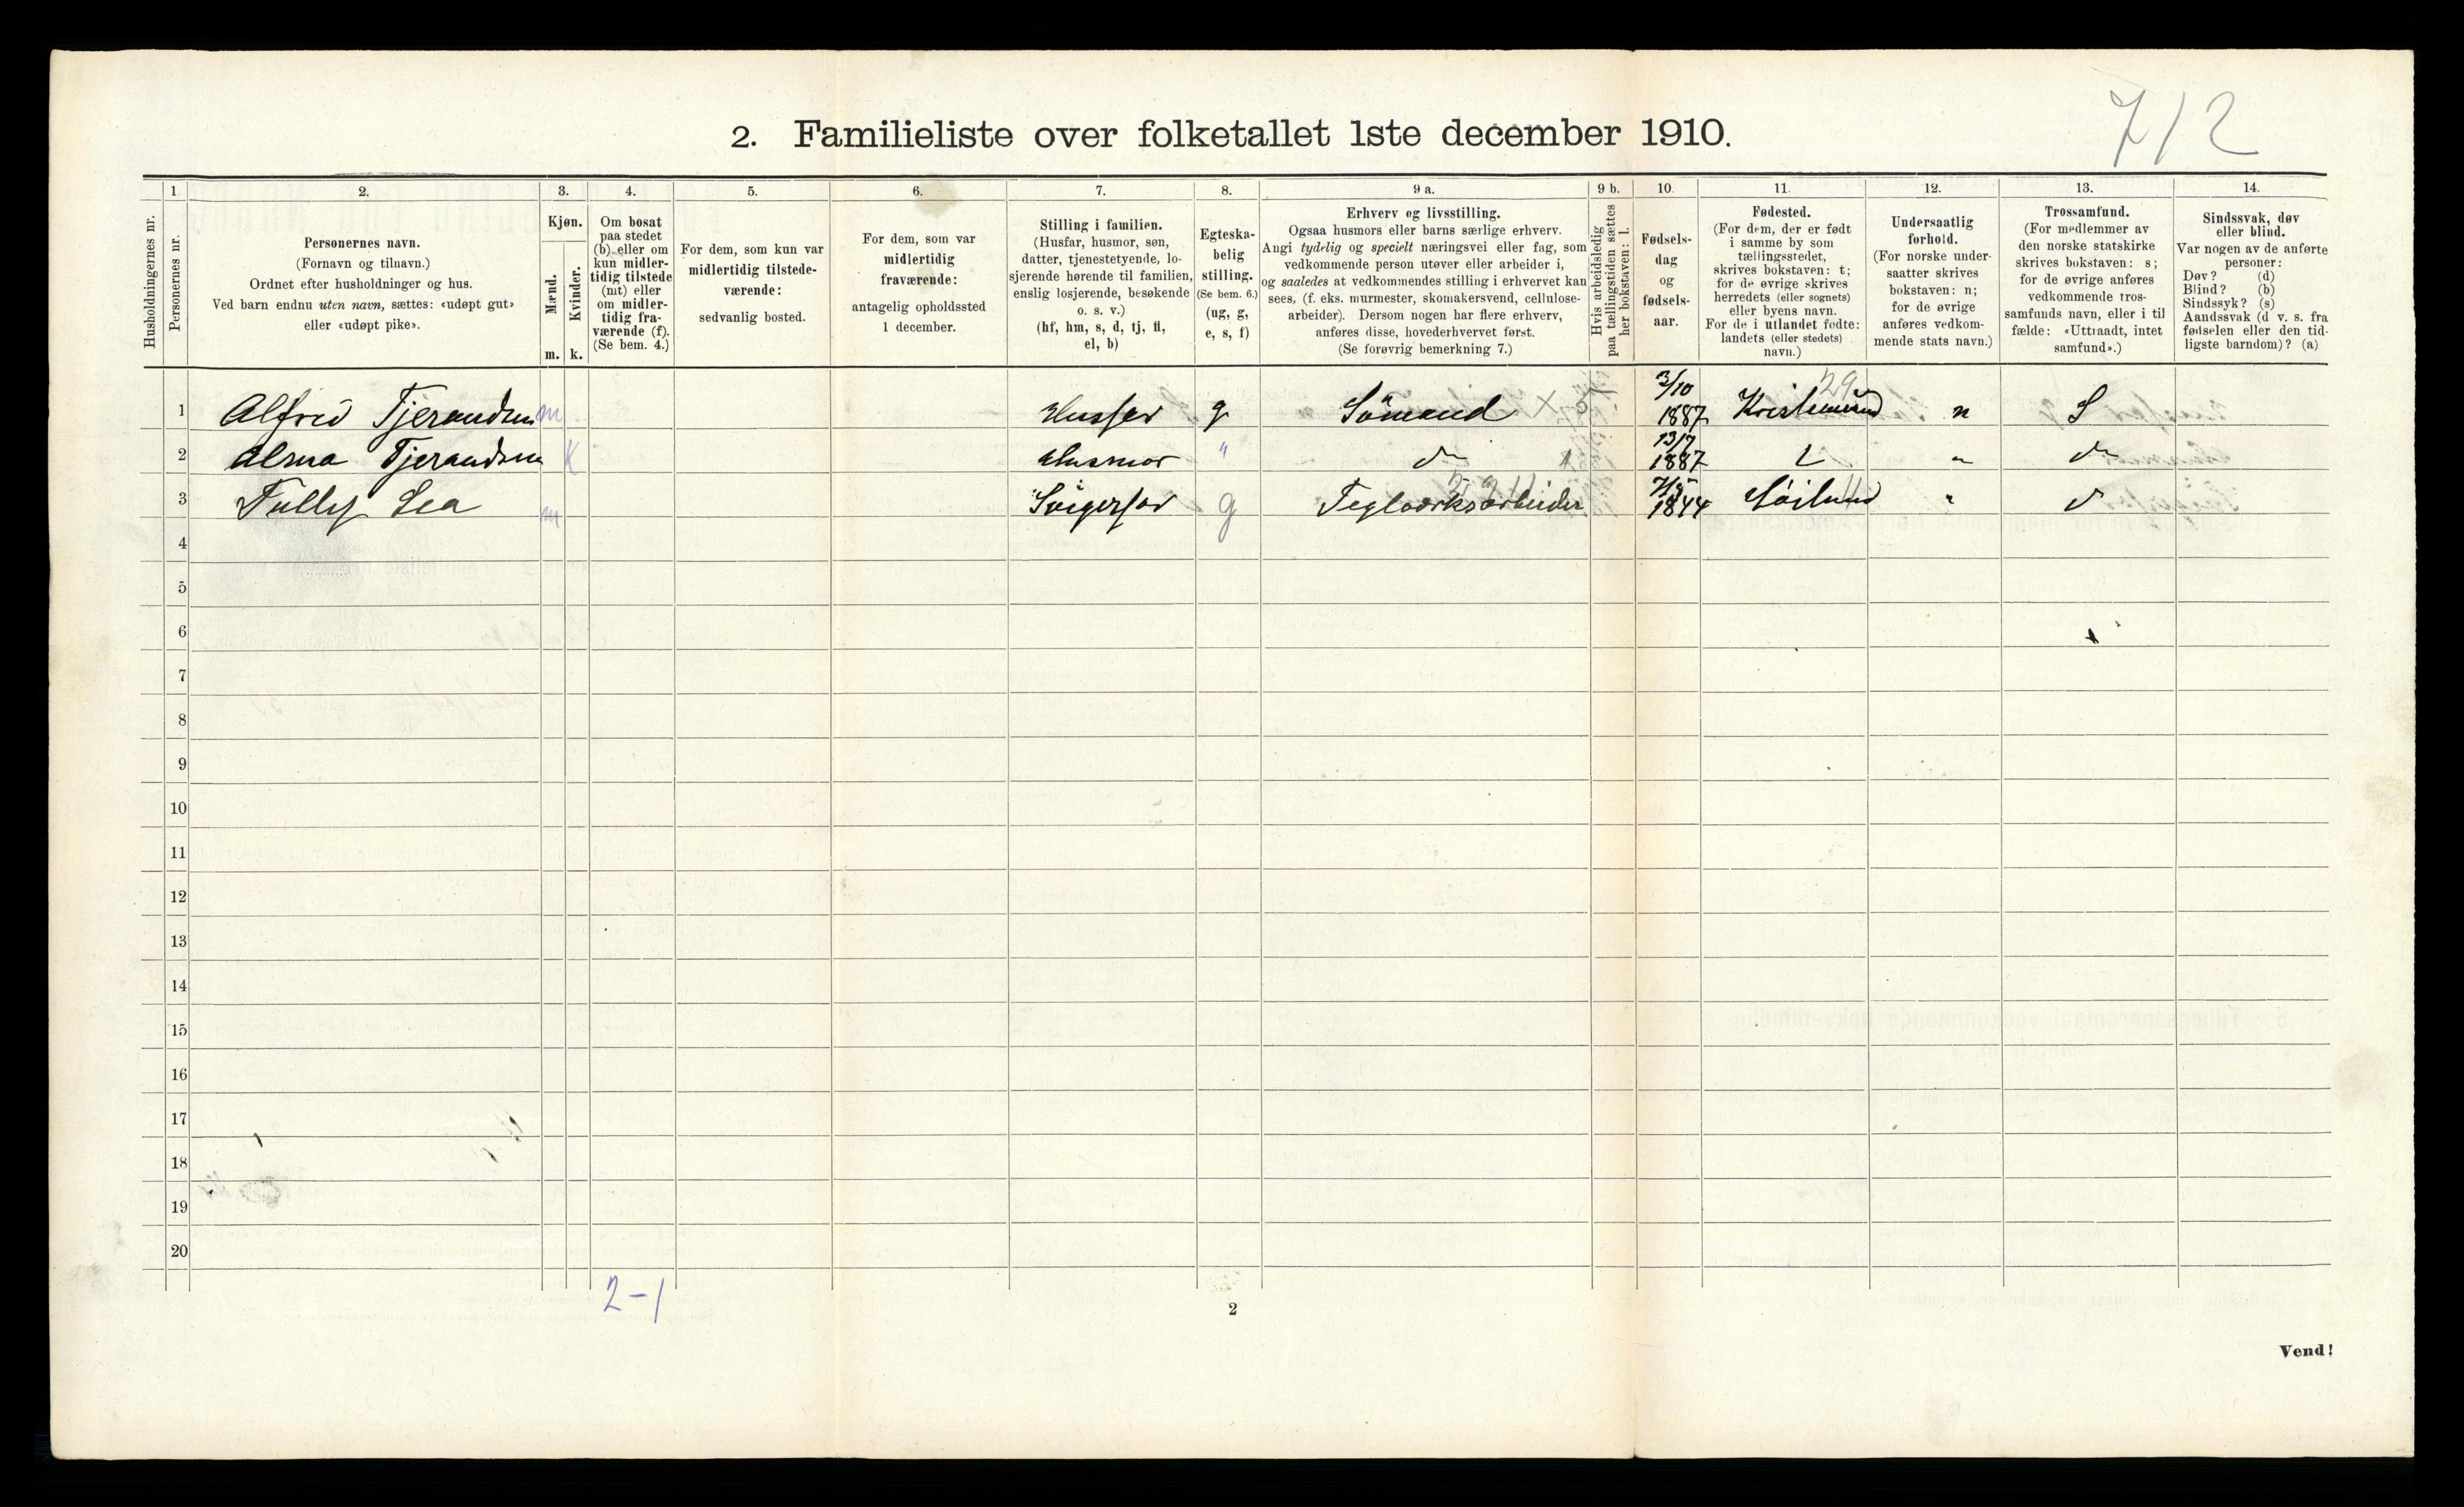 712
2. Familieliste over folketallet 1ste december 1910.
Husholdningernes nr.
1.
Personernes nr.
2.
Personernes navn.
(Fornavn og tilnavn.)
Ordnet efter husholdninger og hus.
Ved barn endnu uten navn, sættes: «udøpt gut»
eller «udøpt pike».
3.
Kjøn.
Mænd.
Kvinder.
m. k.
4.
Om bosat
paa stedet
(b) eller om
kun midler-
tidig tilstede
(mt) eller
om midler-
tidig fra-
værende (f).
(Se bem. 4.)
5.
For dem, som kun var
midlertidig tilstede-
værende:
sedvanlig bosted.
6.
For dem, som var
midlertidig
fraværende:
antagelig opholdssted
1 december.
7.
Stilling i familien.
(Husfar, husmor, søn,
datter, tjenestetyende, lo-
sjerende hørende til familien,
enslig losjerende, besøkende
o. s. v.)
(hf, hm, s, d, tj, fl,
el, b)
8.
Egteska-
belig
stilling.
(Se bem. 6.)
(ug, g,
e, s, f)
9 a.
Erhverv og livsstilling.
Ogsaa husmors eller barns særlige erhverv.
Angi tydelig og specielt næringsvei eller fag, som
vedkommende person utøver eller arbeider i,
og saaledes at vedkommendes stilling i erhvervet kan
sees, (f. eks. murmester, skomakersvend, cellulose-
arbeider). Dersom nogen har flere erhverv,
anføres disse, hovederhvervet først.
(Se forøvrig bemerkning 7.)
9 b.
Hvis arbeidsledig
paa tællingstiden sættes
her bokstaven: l.
10.
Fødsels-
dag
og
fødsels-
aar.
11.
Fødested.
(For dem, der er født
i samme by som
tællingsstedet,
skrives bokstaven: t;
for de øvrige skrives
herredets (eller sognets)
eller byens navn.
For de i utlandet fødte:
landets (eller stedets)
navn.)
12.
Undersaatlig
forhold.
(For norske under-
saatter skrives
bokstaven: n;
for de øvrige
anføres vedkom-
mende stats navn.)
13.
Trossamfund.
(For medlemmer av
den norske statskirke
skrives bokstaven: s;
for de øvrige anføres
vedkommende tros-
samfunds navn, eller i til
fælde: «Uttraadt, intet
samfund».)
14.
Sindssvak, døv
eller blind.
Var nogen av de anførte
personer:
Døv? (d)
Blind? (b)
Sindssyk? (s)
Aandssvak (d v. s. fra
fødselen eller den tid-
ligste barndom)? (a)
1 Alfred Tjerandsen m Husfar g Sömand X 3/10 1887 Kristiansund 29 n S
2 Alma Tjerandsen K Husmor " do 13/7 1887 " do
3 Tollef Lea m Svigerfar g Teglværksarbeider 1844 " do
4
5
6
7
8
9
10
11
12
13
14
15
16
17
18
19
20
2-1
2
Vend!